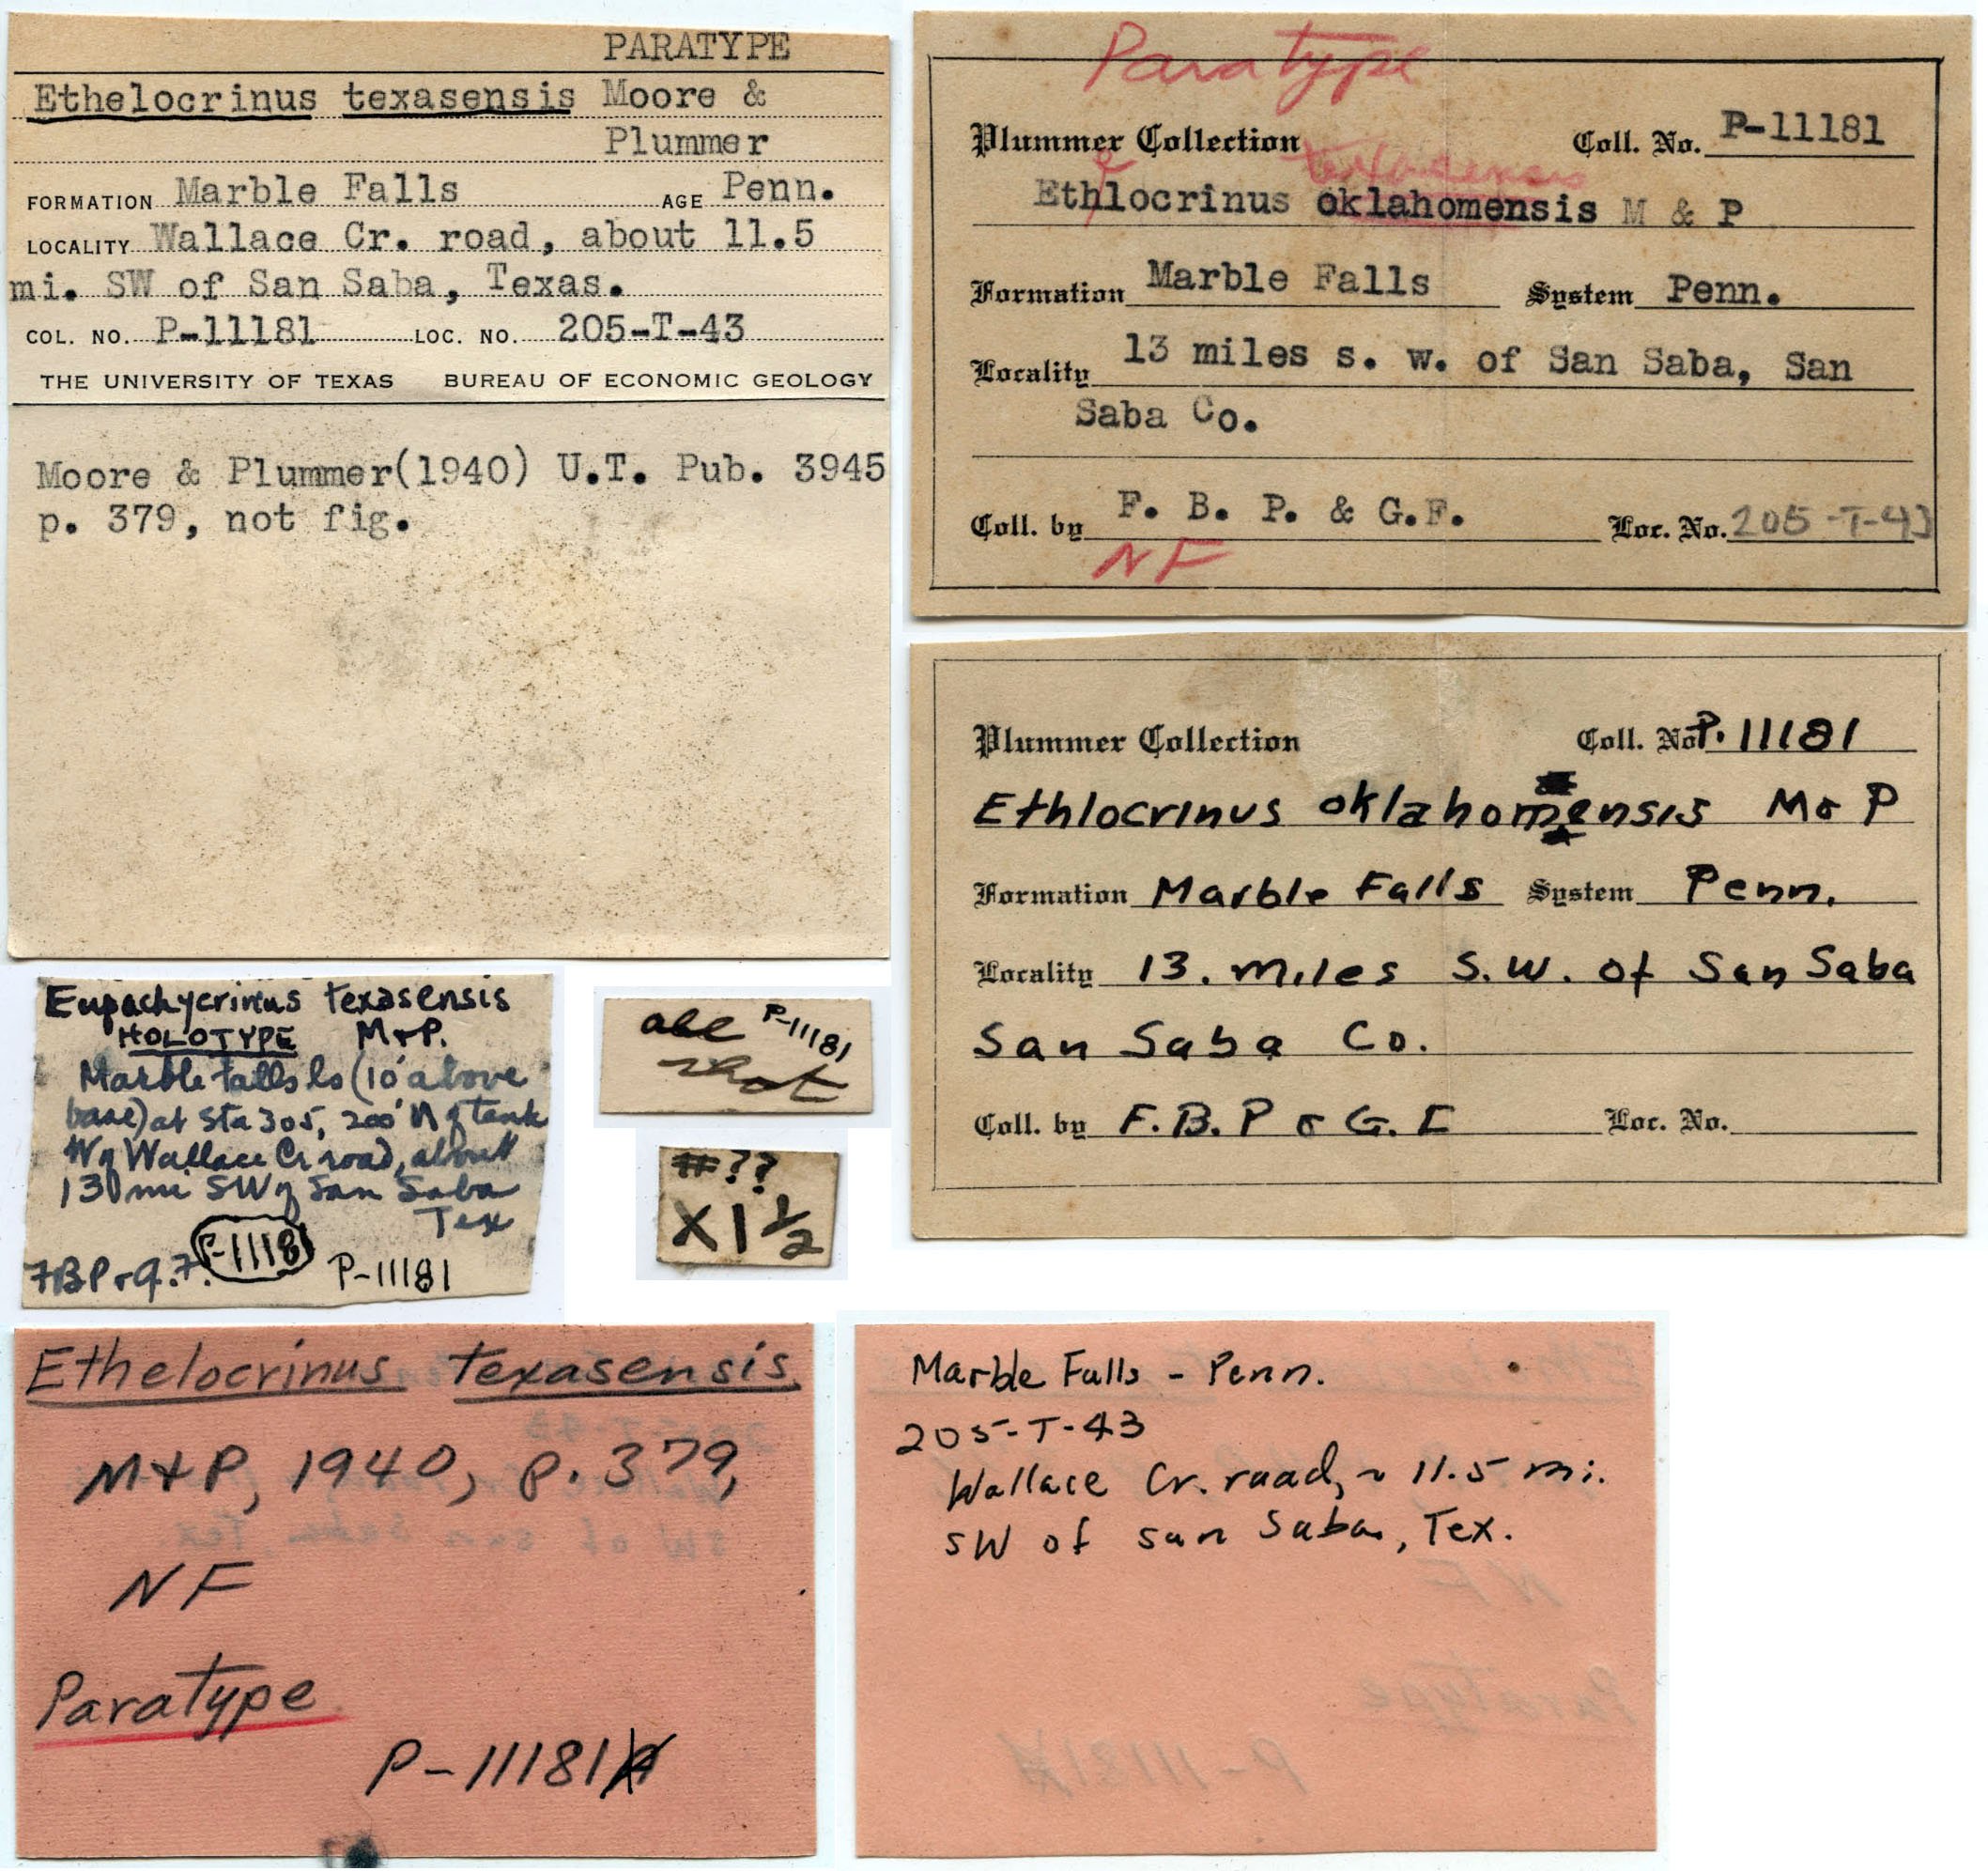 PARATYPE
Ethelocrinus texasensis Moore &
Plummer
FORMATION Marble Falls AGE Penn.
LOCALITY Wallace Cr. road, about 11.5
mi. SW of San Saba, Texas.
COL. NO. P-11181 LOC. NO. 205-T-43
THE UNIVERSITY OF TEXAS BUREAU OF ECONOMIC GEOLOGY
Moore & Plummer(1940) U.T. Pub. 3945
p. 379, not fig.
Paratype
Plummer Collection Coll. No. P-11181
e texasensis
Ethlocrinus oklahomensis M & P
Formation Marble Falls System Penn.
Locality 13 miles s. w. of San Saba, San
Saba Co.
Coll. by F. B. P. & G.F. Loc. No. 205-T-43
NF
Plummer Collection Coll. No. P-11181
Ethlocrinus oklahomensis M & P
Formation Marble Falls System Penn.
Locality 13. miles S.W. of San Saba
San Saba Co.
Coll. by F.B.P & G. F Loc. No.
Eupachycrinus texasensis
HOLOTYPE M & P.
Marble Falls ls (10' above
base) at Sta 305, 200' N of tank
W of Wallace Cr road, about
13 mi SW of San Saba
Tex
P-11181
FBP & G.F. P-11181
P-11181
shot
#??
X1½
Ethelocrinus texasensis
M & P, 1940, p. 379,
NF
Paratype
P-11181
Marble Falls - Penn.
205-T-43
Wallace Cr. road, ~ 11.5 mi.
SW of San Saba, Tex.